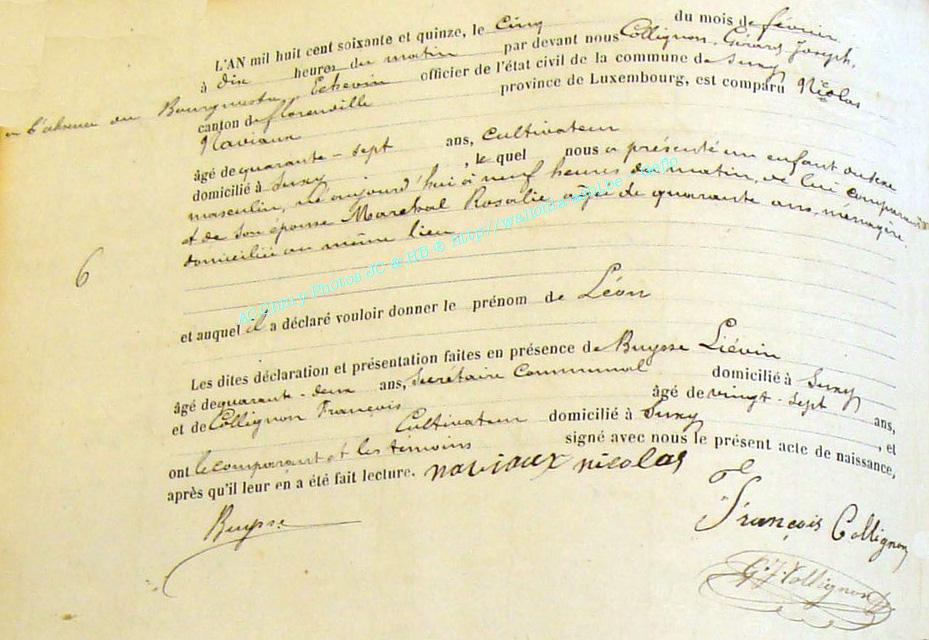 L'AN mil huit cent soixante et quinze, le Cinq du mois de février
à dix heures du matin par devant nous Collignon, Gérard Joseph,
en l'absence du Bourgmestre, Echevin officier de l'état civil de la commune de Suxy
canton de florenville province de Luxembourg, est comparu Nicolas
Naviaux
âgé de quarante-sept ans, Cultivateur
domicilié à Suxy, le quel nous a présenté un enfant du sexe
masculin, né aujourd'hui à neuf heures du matin, de lui comparant
et de son épouse Maréchal Rosalie, agée de quarante ans, ménagère,
domiciliée au même lieu
6
et auquel il a déclaré vouloir donner le prénom de Léon
Les dites déclaration et présentation faites en présence de Buysse Liévin
âgé de quarante-deux ans, Secrétaire Communal domicilié à Suxy
et de Collignon François âgé de vingt-sept ans,
Cultivateur domicilié à Suxy, et
ont le comparant et les témoins signé avec nous le présent acte de naissance,
après qu'il leur en a été fait lecture. naviaux nicolas
Buysse
François Collignon
G. J. Collignon
Photos JC & HB ©